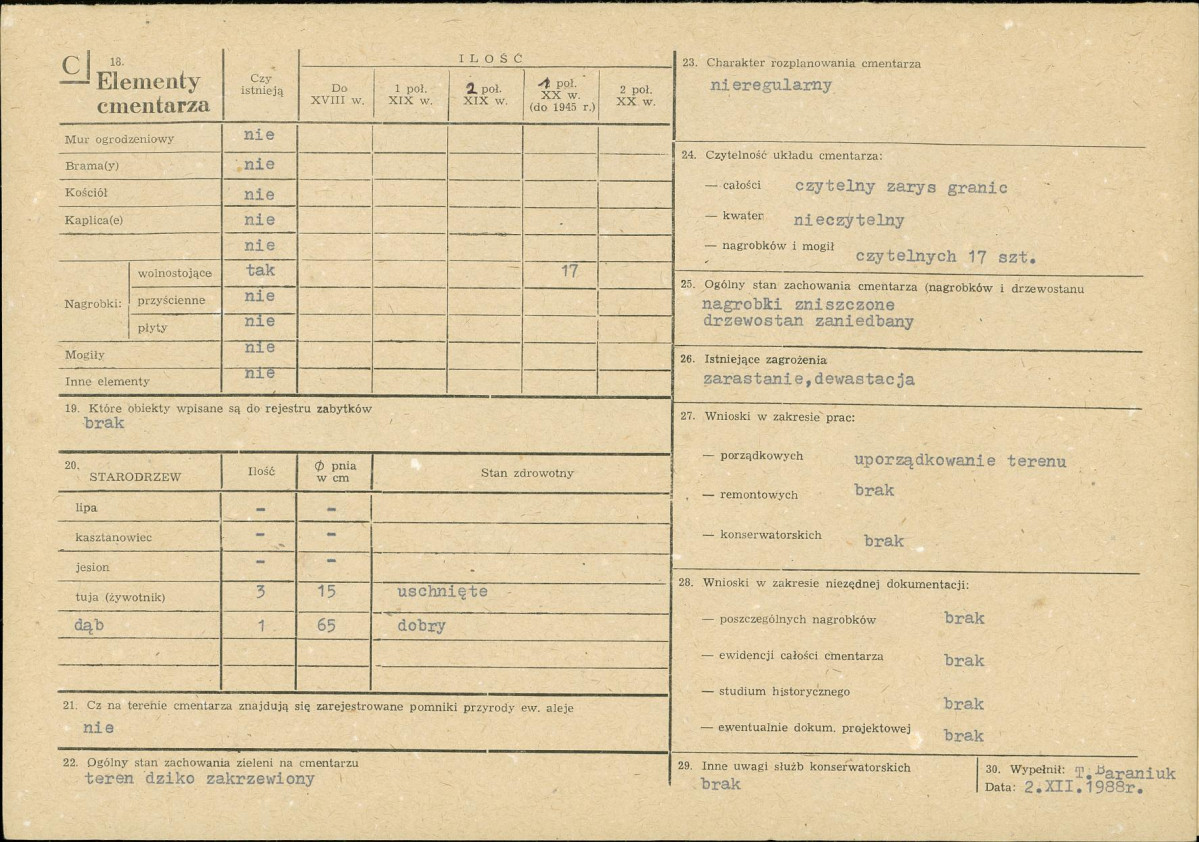 C 18.
Elementy
cmentarza
Czy
istnieją
ILOŚĆ
Do
XVIII w.
1 poł.
XIX w.
2 poł.
XIX w.
1 poł.
XX w.
(do 1945 r.)
2 poł.
XX w.
Mur ogrodzeniowy nie
Brama(y) nie
Kościół nie
Kaplica(e) nie
nie
Nagrobki:
wolnostojące tak 17
przyścienne nie
płyty nie
Mogiły nie
Inne elementy nie
19. Które obiekty wpisane są do rejestru zabytków
brak
20.
STARODRZEW
Ilość
Φ pnia
w cm
Stan zdrowotny
lipa - -
kasztanowiec - -
jesion - -
tuja (żywotnik) 3 15 uschnięte
dąb 1 65 dobry
21. Cz na terenie cmentarza znajdują się zarejestrowane pomniki przyrody ew. aleje
nie
22. Ogólny stan zachowania zieleni na cmentarzu
teren dziko zakrzewiony
23. Charakter rozplanowania cmentarza
nieregularny
24. Czytelność układu cmentarza:
— całości czytelny zarys granic
— kwater nieczytelny
— nagrobków i mogił czytelnych 17 szt.
25. Ogólny stan zachowania cmentarza (nagrobków i drzewostanu
nagrobki zniszczone
drzewostan zaniedbany
26. Istniejące zagrożenia
zarastanie,dewastacja
27. Wnioski w zakresie prac:
— porządkowych uporządkowanie terenu
— remontowych brak
— konserwatorskich brak
28. Wnioski w zakresie niezędnej dokumentacji:
— poszczególnych nagrobków brak
— ewidencji całości cmentarza brak
— studium historycznego brak
— ewentualnie dokum. projektowej brak
29. Inne uwagi służb konserwatorskich
brak
30. Wypełnił: T.Baraniuk
Data: 2.XII.1988r.